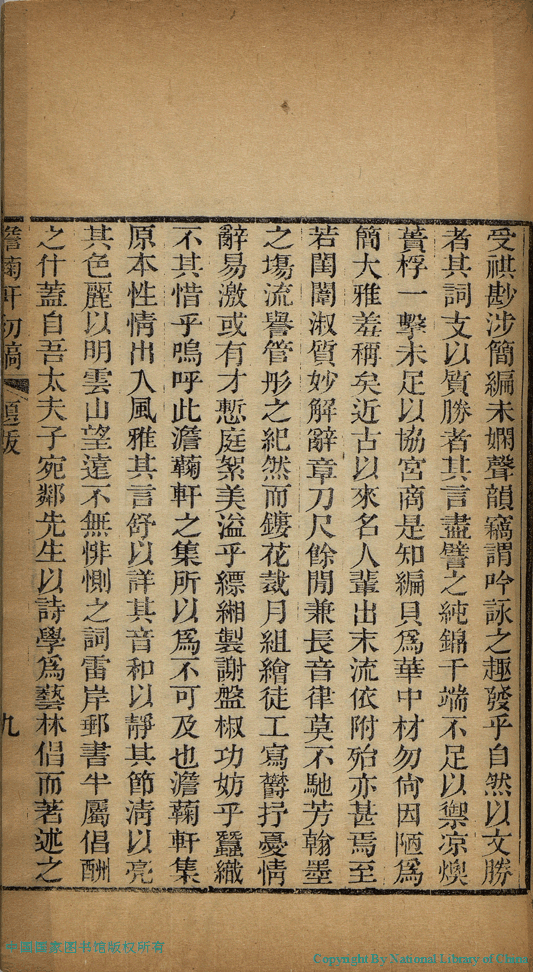 受祺尠涉簡編未嫻聲韻竊謂吟詠之趣發乎自然以文勝
者其詞支以質勝者其言盡譬之純錦千端不足以禦凉燠
蕢桴一擊未足以協宮商是知編貝爲華中材勿尙因陋爲
簡大雅羞稱矣近古以來名人輩出末流依附殆亦甚焉至
若閨闈淑質妙解辭章刀尺餘閒兼長音律莫不馳芳翰墨
之塲流譽管彤之紀然而鏤花裁月組繪徒工寫鬱抒憂情
辭易激或有才慙庭絮美溢乎縹緗製謝盤椒功妨乎蠶織
不其惜乎嗚呼此澹蘜軒之集所以爲不可及也澹蘜軒集
原本性情出入風雅其言舒以詳其音和以靜其節淸以亮
其色麗以明雲山望遠不無悱惻之詞雷岸郵書半屬倡酬
之什蓋自吾太夫子宛鄰先生以詩學爲藝林倡而著述之
澹蘜軒初稿
九
中国国家图书馆版权所有
Copyright By National Library of China